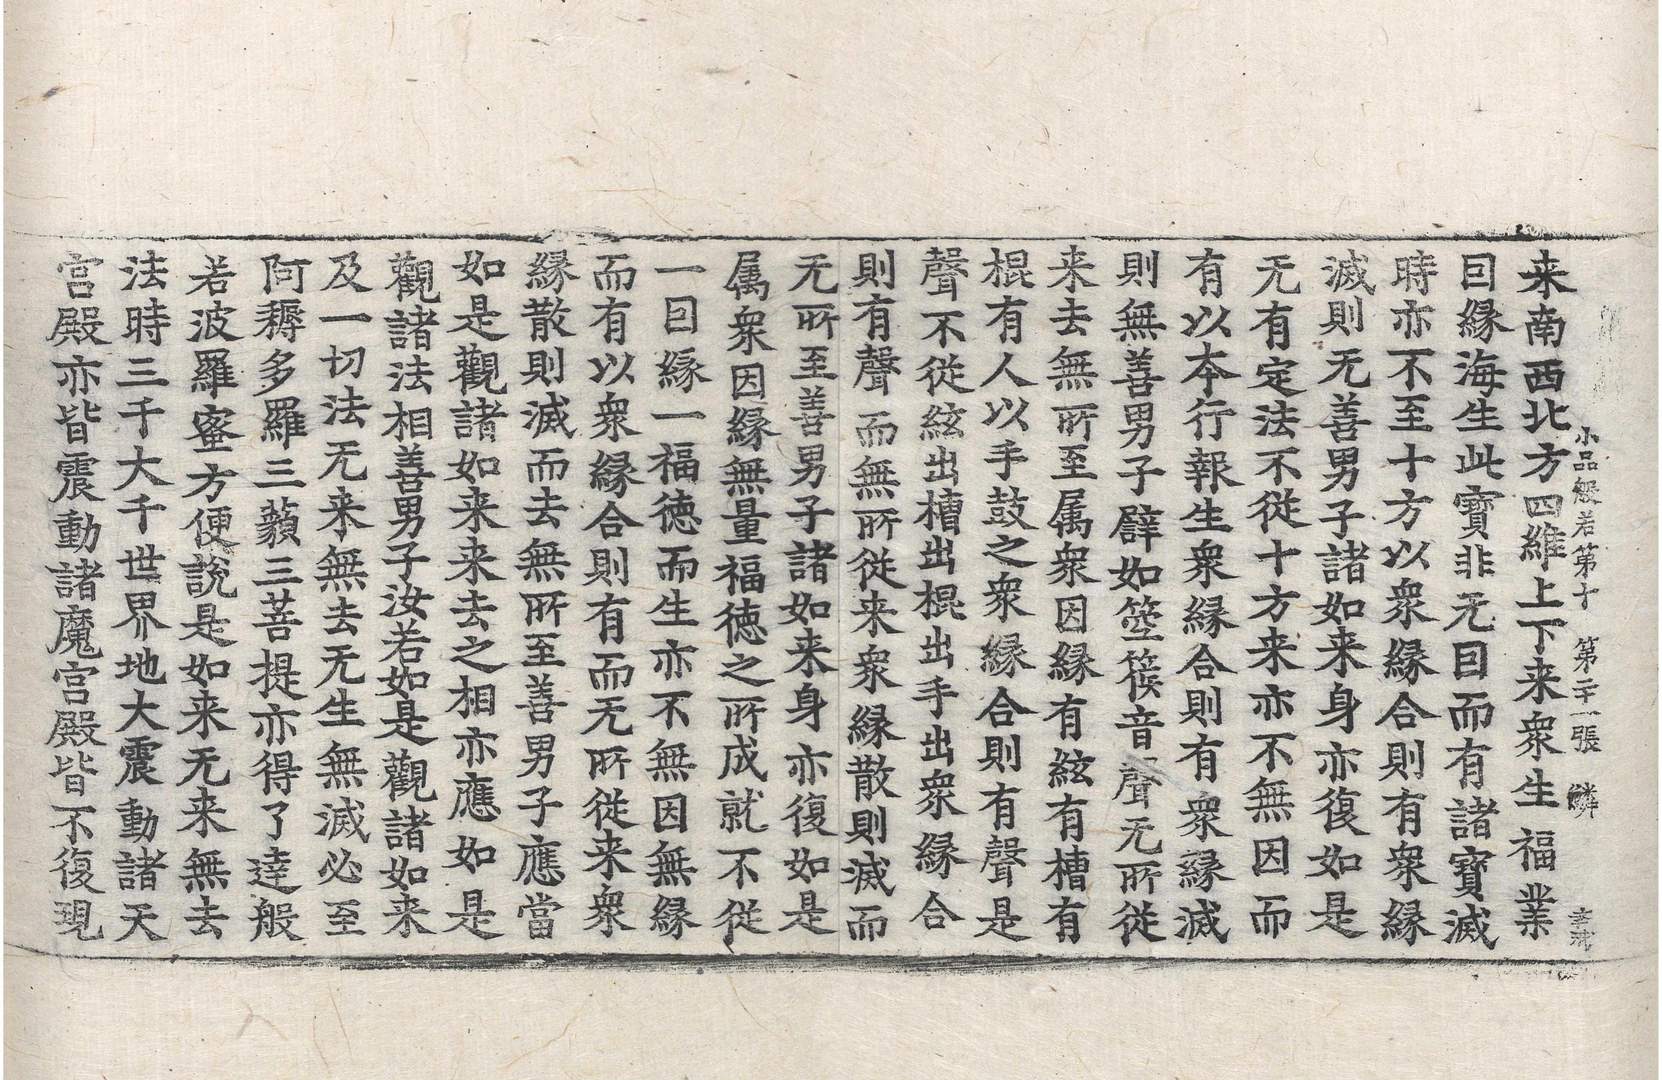 小品般若第十　第二十一張　鱗
来南西北方四維上下来衆生福業
因縁海生此寶非无因而有諸寶滅
時亦不至十方以衆縁合則有衆縁
滅則无善男子諸如来身亦復如是
无有定法不從十方来亦不無因而
有以本行報生衆縁合則有衆縁滅
則無善男子譬如箜篌音聲无所從
来去無所至属衆因縁有絃有槽有
棍有人以手鼓之衆縁合則有聲是
聲不從絃出槽出棍出手出衆縁合
則有聲而無所從来衆縁散則滅而
无所至善男子諸如来身亦復如是
属衆因縁無量福德之所成就不從
一因縁一福德而生亦不無因無縁
而有以衆縁合則有而无所從来衆
縁散則滅而去無所至善男子應當
如是觀諸如来来去之相亦應如是
觀諸法相善男子汝若如是觀諸如来
及一切法无来無去无生無滅必至
阿耨多羅三藐三菩提亦得了達般
若波羅蜜方便說是如来无来無去
法時三千大千世界地大震動諸天
宮殿亦皆震動諸魔宮殿皆不復現